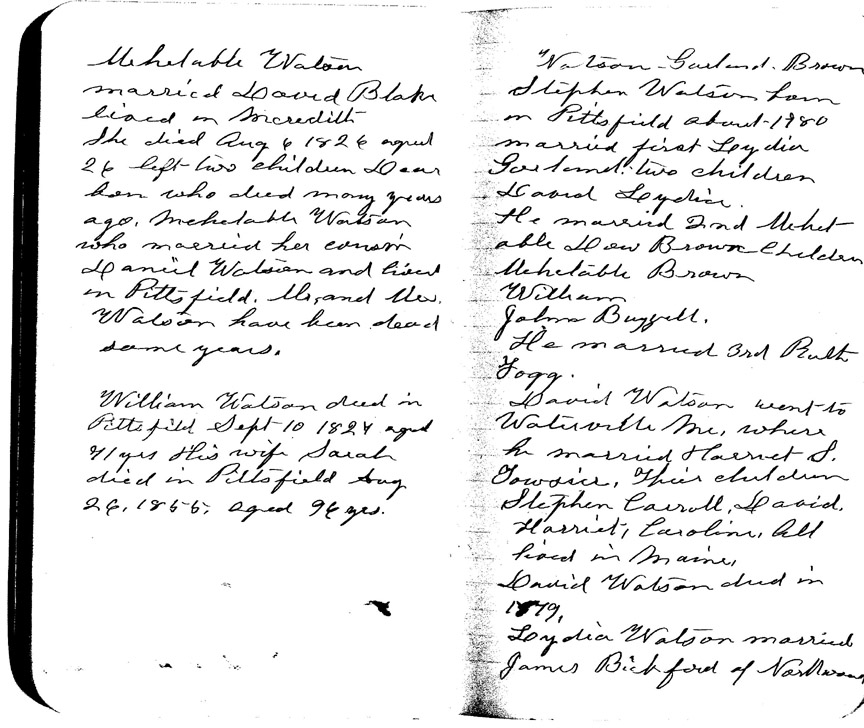 Mehetable Watson
married David Blake
lived in Meredith
She died Aug 6 1826 aged
26 left two children Dear
bon who died many years
ago. Mehetable Watson
who married her cousin
Daniel Watson and lived
in Pittsfield. Mr, and Mrs.
Watson have been dead
some years.
William Watson died in
Pittsfield Sept 10 1824 aged
71 yrs His wife Sarah
died in Pittsfield Aug
26, 1855, aged 96 yrs.
Watson-Garland. Brown
Stephen Watson born
in Pittsfield about-1780
married first Lydia
Garland: two children
David Lydia.
He married 2nd Mehet
able Dow Brown Children
Mehetable Brown
William
John Buzzell.
He married 3rd Ruth
Fogg.
David Watson went to
Waterville Me, where
he married Harriet S.
Their children
Stephen Carroll, David.
Harriet, Caroline, All
lived in Maine,
David Watson died in
1879,
Lydia Watson married
James Bickford of Northwood